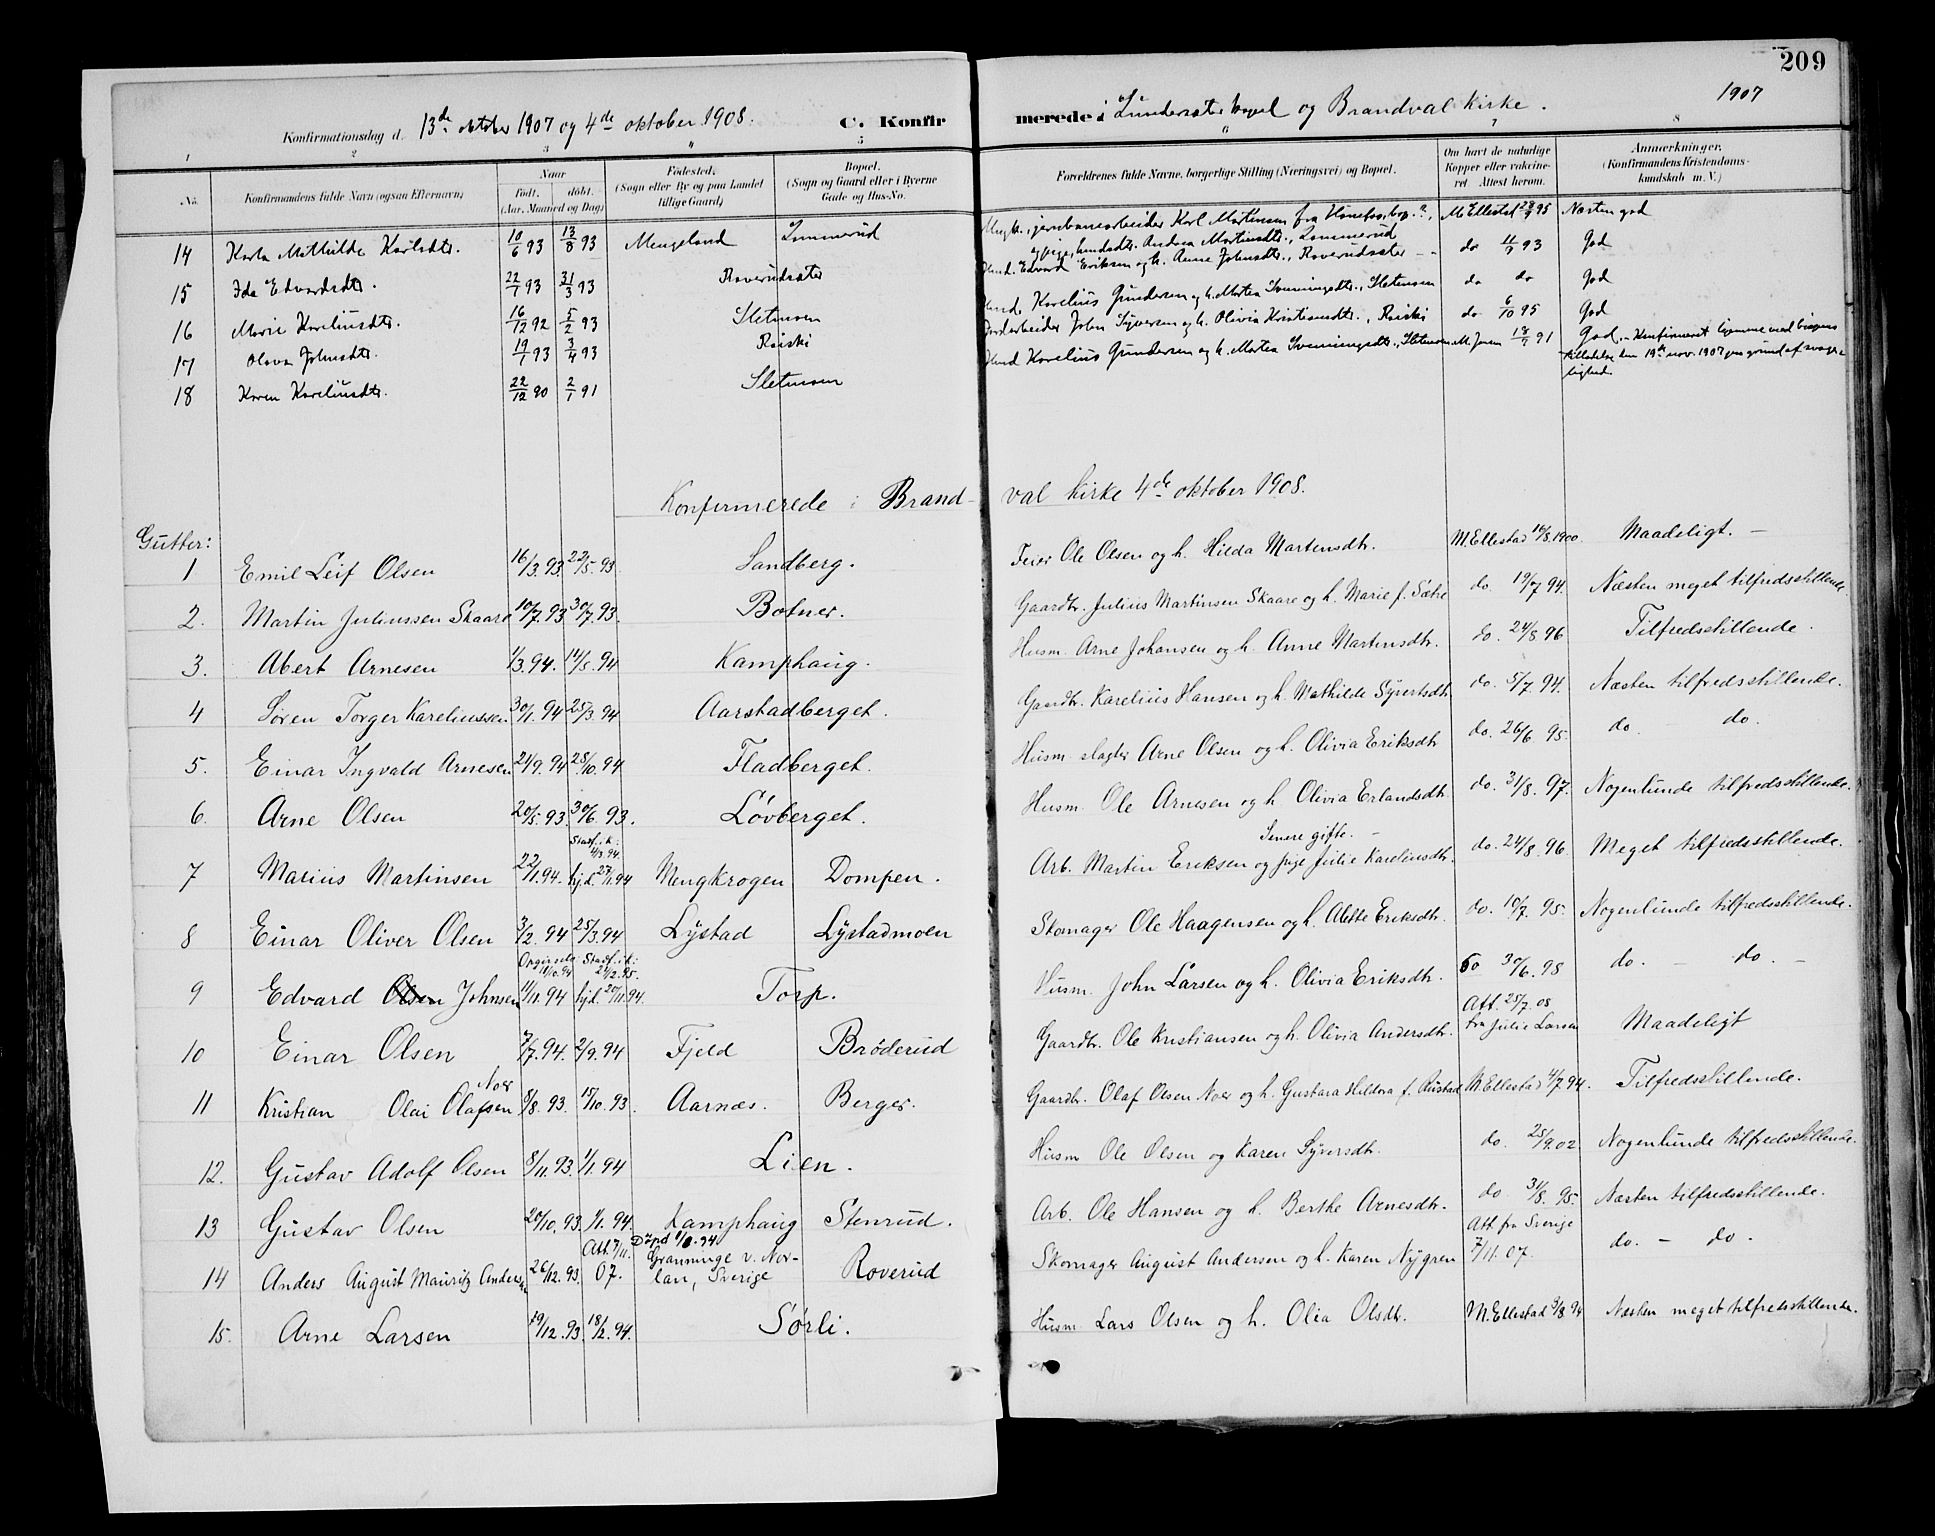 209
Konfirmationsdag d. 13de oktober 1907 og 4de oktober 1908. C. Konfirmerede i Lundersæter kapel og Brandval kirke. 1907
1 2 3 4 5 6 7 8
No. Konfirmandens fulde Navn (ogsaa Efternavn) Naar født. døbt. (Aar, Maaned og Dag) Fødested. (Sogn eller By og paa Landet tillige Gaard) Bopæl. (Sogn og Gaard eller i Byerne Gade og Hus-No. Forældrenes fulde Navne, borgerlige Stilling (Næringsvei) og Bopæl. Om havt de naturlige Kopper eller vakcineret. Attest herom. Anmærkninger. (Konfirmandens Kristendomskundskab m. V.)
14 Karla Mathilde Karlsdtr. 10/6 93 13/8 93 Mengeland Lommerud jernbanearbeider Karl Martinsen fra Hønefos, Andrea Martinsdtr., Lommerud M Ellestad 95 Næsten god
15 Ida Edvardsdtr. 22/7 93 31/3 93 Roverudsæter Edvard Eriksen og h. Anne Johnsdtr., Roverudsæter do 11/9 93 God
16 Marie Kareliusdtr. 16/12 92 5/2 93 Sletmoen Karelius Gundersen og h. Martea Svenningsdtr., Sletmoen do do God
17 Olava Johnsdtr. 19/1 93 3/4 93 Raiski Jordarbeider John Syversen og h. Olivia Kristiansdtr., Raiski do 6/10 95 God
18 Karen Kareliusdtr. 22/12 90 2/1 91 Sletmoen Karelius Gundersen og h. Martea Svenningsdtr., Sletmoen M Jensen 91 God. - Konfirmeret hjemme med bispens tilladelse den 19de nov. 1907 paa grund af svagelighed.
Konfirmerede i Brandval kirke 4de oktober 1908.
Gutter:
1 Emil Leif Olsen 16/3. 93. 22/5. 93 Sandberg. Feier Ole Olsen og h. Hilda Martensdtr. M. Ellestad 16/8. 1900. Maadeligt. -
2. Martin Juliussen Skaare 10/7. 93 30/7. 93. Botner. Gaardbr. Julius Martinsen Skaare og h. Marie f. Sætre do. 19/7 94. Næsten meget tilfredsstillende
3. Abert Arnesen 1/3. 94. 14/5. 94 Kamphaug. Husm. Arne Johansen og h. Anne Martinsdtr. do. 24/8 96 Tilfredsstillende.
4 Søren Torger Kareliussen 30/1. 94 25/3. 94 Aarstadberget. Gaardbr. Karelius Hansen og h. Mathilde Syvertsdtr. do. 5/7 94. Næsten tilfredsstillende.
5. Einar Ingvald Arnesen 21/9. 94 28/10. 94 Fladberget. Husm. slagter Arne Olsen og h. Olivia Eriksdtr. do. 26/6. 95. do. - do.
6. Arne Olsen 20/5. 93. 30/6. 93. Løvberget. Husm. Ole Arnesen og h. Olivia Erlandsdtr. do. 31/8. 97. Nogenlunde tilfredsstillende.
7 Marius Martinsen 22/1. 94. Stadf. i k: 4/3. 94. hjd. 27/1. 94 Mengkrogen Dompen. Arb. Martin Eriksen og pige Julie Kareliusdtr. Senere gifte. - do. 24/8. 96. Meget tilfredsstillende.
8 Einar Oliver Olsen 3/2. 94 25/3. 94 Lystad Lystadmoen Skomager Ole Haagensen og h. Alette Eriksdtr. do. 10/7. 95. Nogenlunde tilfredsstillende.
9 Edvard Olsen Johnsen 11/11. 94 Stadf. i k: 21/2. 95. hjd. 20/11. 94. Torp. Husm. John Larsen og h. Olivia Eriksdtr. do 30/6. 98 do. - do. -
10 Einar Olsen 7/7. 94. 2/9. 94 Fjeld Brøderud Gaardbr. Ole Kristiansen og h. Olivia Andersdtr. Att. 25/7. 08 fra Julie Larsen Maadeligt
11 Kristian Olai Olafsen Noer 8/8. 93. 15/10. 93. Aarnæs. Berger. Gaardbr. Olaf Olsen Noer og h. Gustava Heldora f. Austad M Ellestad 4/7. 94. Tilfredsstillende.
12. Gustav Adolf Olsen 8/11. 93. 1/1. 94 Lien. Husm Ole Olsen og Karen Syversdtr. do. 25/9. 02 Nogenlunde tilfredsstillende.
13 Gustav Olsen 20/10. 93. 1/1. 94. Kamphaug Stenrud. Arb. Ole Hansen og h. Berthe Arnesdtr. do. 31/8. 95. Næsten tilfredsstillende.
14 Anders August Mauritz Andersen 26/12. 93. Att. 7/11. 07. Døpt 1/8. 94 Graninge v. Norlan, Sverige Roverud Skomager August Andersen og h. Karen Nygren Att. fra Sverige 7/11. 07. do. - do.
15. Arne Larsen 19/12. 93. 18/2. 94. Sørli. Husm. Lars Olsen og h. Olea Olsdtr. M. Ellestad 9/8. 94 Næsten meget tilfredsstillende.